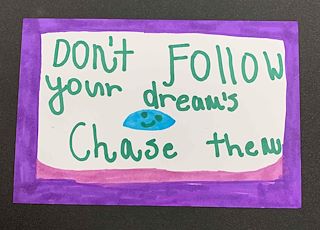 DON't FOLLOW
your dream's
Chase them